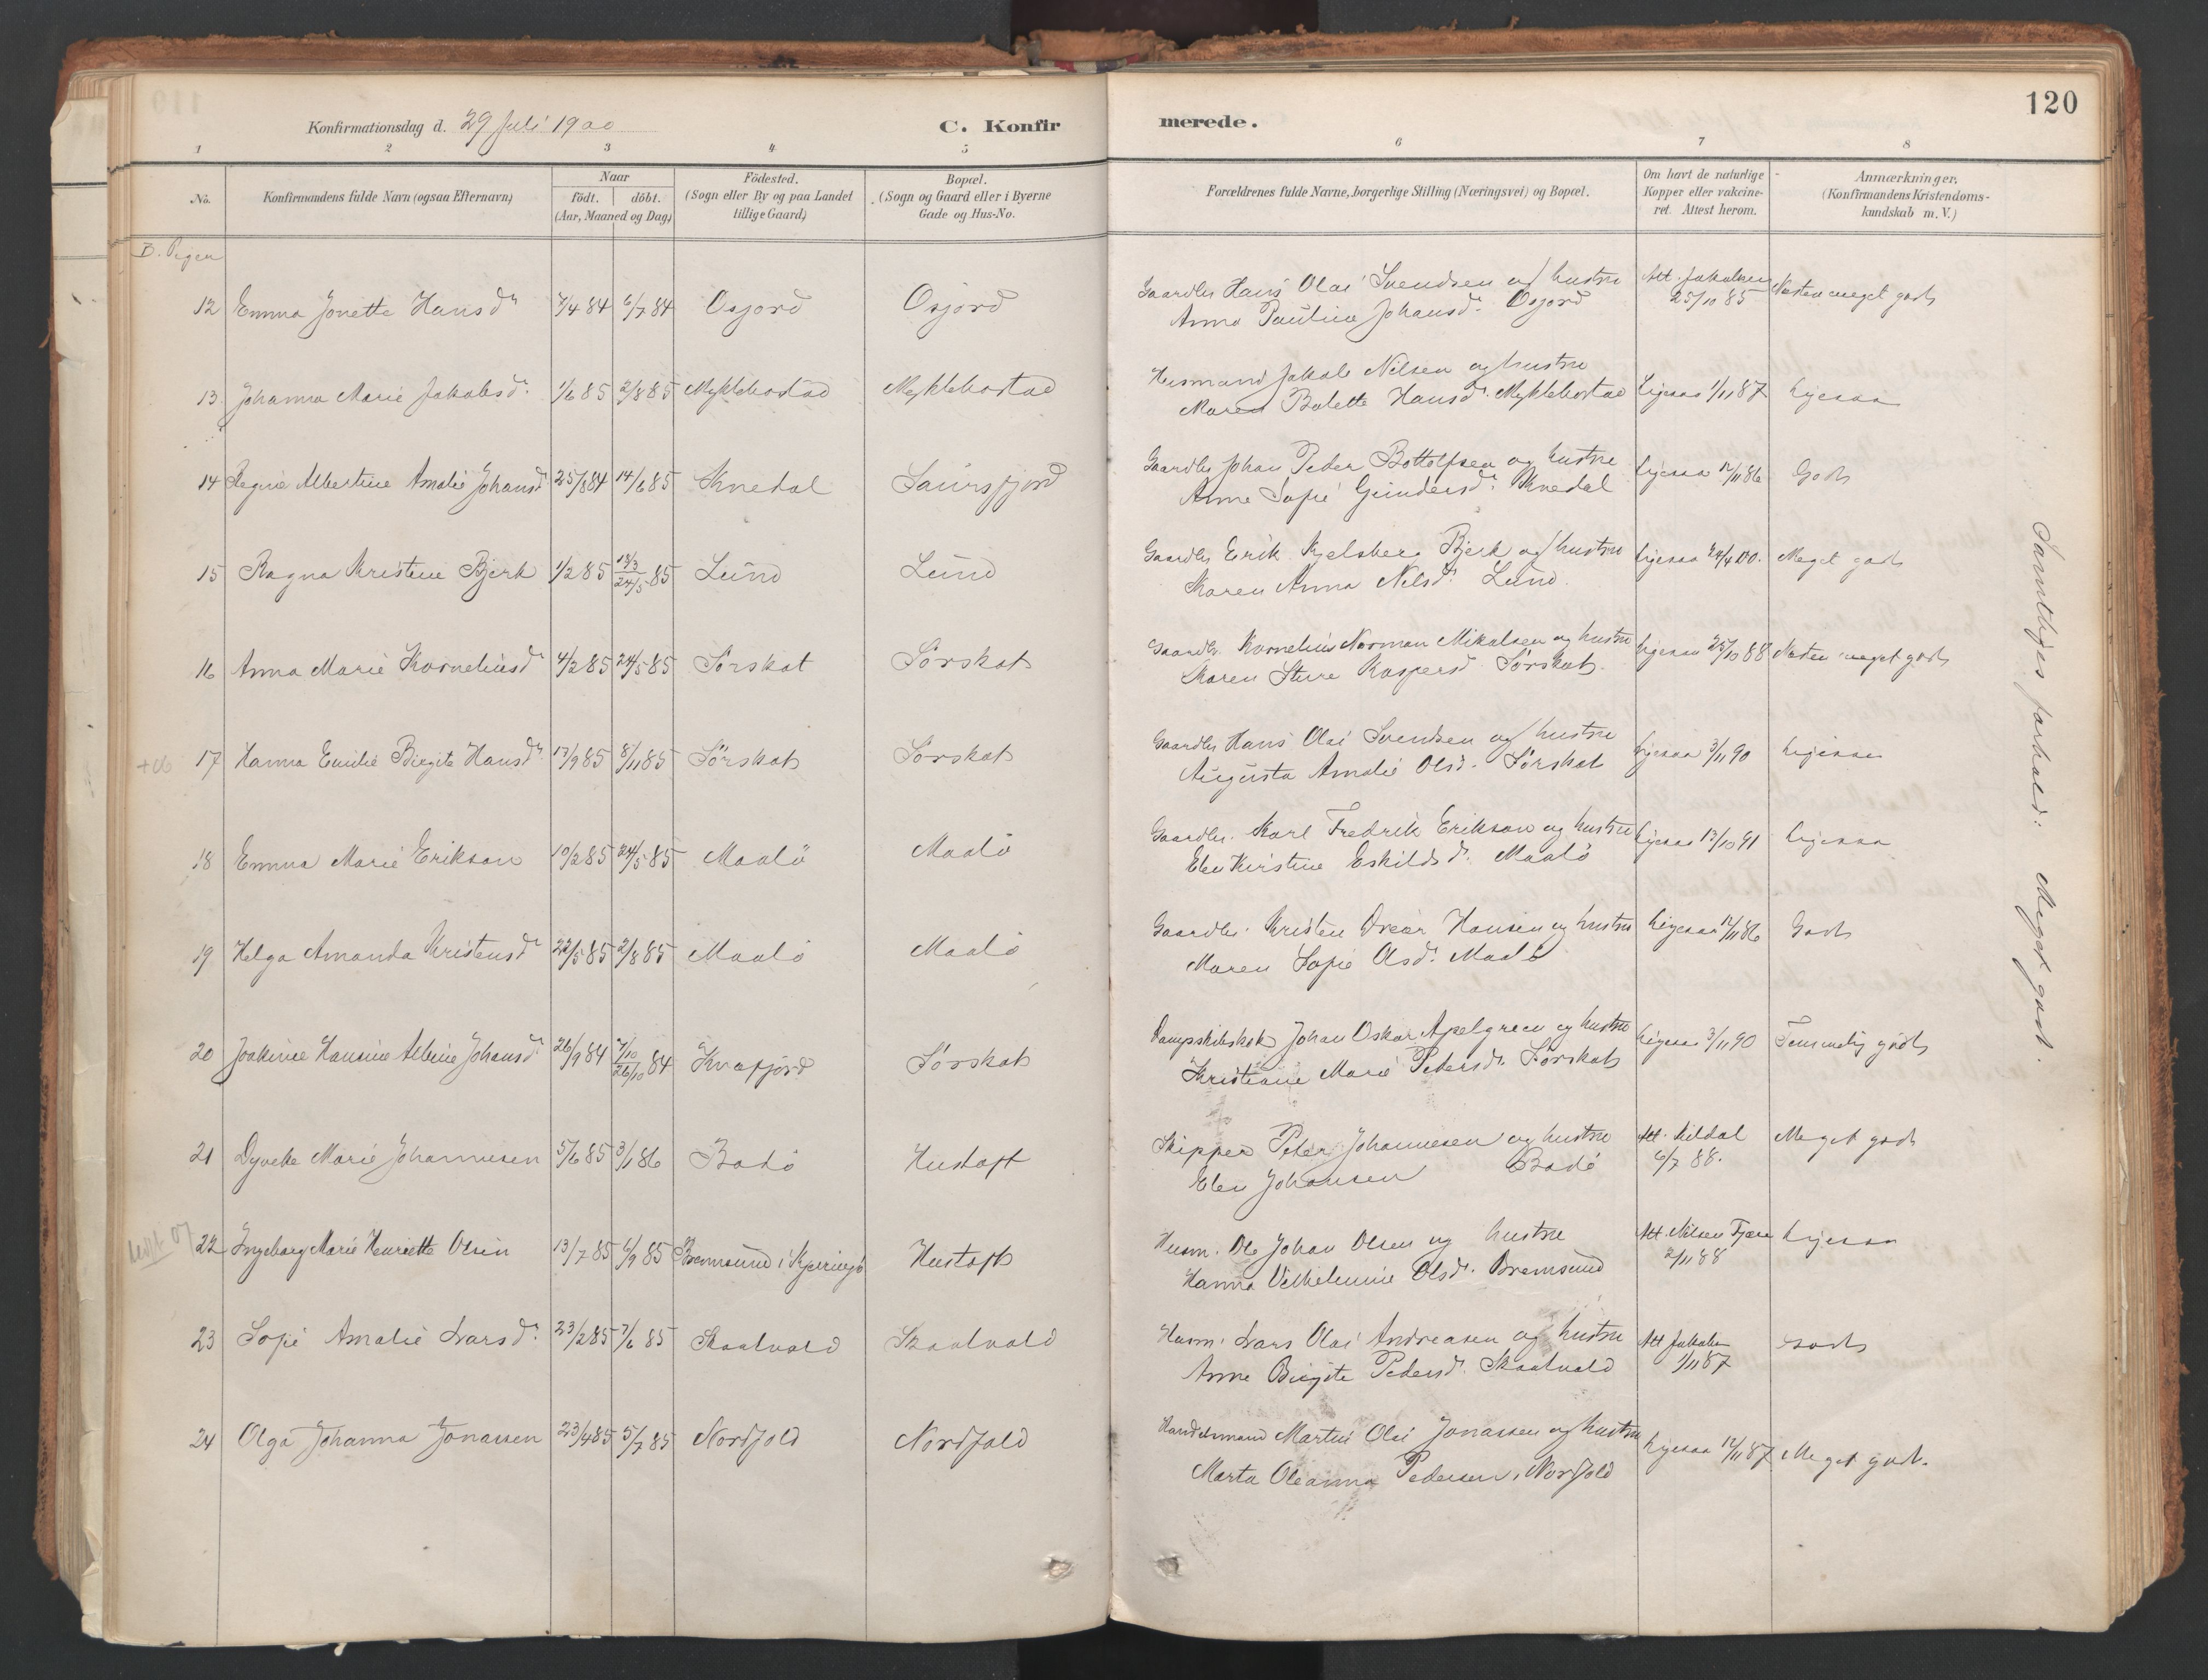 120
Konfirmationsdag d. 29 Juli 1900
C. Konfirmerede.
1 2 3 4 5 6 7 8
No. Konfirmandens fulde Navn (ogsaa Efternavn) Naar födt. döbt. (Aar, Maaned og Dag) Födested. (Sogn eller By og paa Landet tillige Gaard) Bopæl. (Sogn og Gaard eller i Byerne Gade og Hus-No. Forældrenes fulde Navne, borgerlige Stilling (Næringsvei) og Bopæl. Om havt de naturlige Kopper eller vakcineret. Attest herom. Anmærkninger. (Konfirmandens Kristendomskundskab m. V.)
Piger
12 Emma Jonette Hansdr 7/4 84 6/7 84 Osjord Osjord Gaardbr Hans Olai Svendsen og hustru Att. Jakobsen Næsten meget godt
Anna Pauline Johansdr. Osjord 25/10 85
13 Johanna Marie Jakobsdr. 1/6 85 2/8 85 Myklebostad Myklebostad Husmand Jakob Nilsen og hustru Ligesaa 1/11 87 Ligesaa
Maren Bolette Hansdr. Myklebostad
14 Regine Albertine Amalie Johansdr 25/8 84 14/6 85 Knedal Saursfjord Gaardbr Johan Peder Bottolfsen og hustru Ligesaa 12/11 86 Godt
Anne Sofie Gundersdr. Knedal
15 Ragna Kristine Bjerk 1/2 85 13/3 24/5 85 Lund Lund Gaardbr Erik Kjelsberg Bjerk og hustru Ligesaa 24/4 00. Meget godt
Karen Anna Nilsdr. Lund.
16 Anna Marie Korneliusdr 4/2 85 24/5 85 Sörskot Sörskot Gaardbr. Kornelius Norman Mikalsen og hustru Ligesaa 25/10 88 Næsten meget godt
Karen Sture Kaspersd Sörskot.
17 Hanna Emilie Birgite Hansdr. 17/9 85 8/11 85 Sörskot Sörskot Gaardbr Hans Olai Svendsen og hustru Ligesaa 3/11 90 Ligesaa
Augusta Amalie Olsd. Sörskot
18 Emma Marie Erikson 10/2 85 24/5 85 Maalö Maalö Gaardbr. Karl Fredrik Erikson og hustru Ligesaa 13/10 91 Ligesaa
Elen Kirstine Eskildsdr. Maalö
19 Helga Amanda Kristensdr 22/5 85 2/8 85 Maalö Maalö Gaardbr. Kristen Oscar Hansen og hustru Ligesaa 12/11 86 Godt
Maren Sofie Olsdr. Maalö
20 Joakine Hansine Albine Johansdr. 26/9 84 7/10 26/10 84 Knapfjord Sörskot Dampskibskok Johan Oskar Apelgreen og hustru Ligesaa 3/11 90 Temmelig godt
Kristiane Marie Pedersdr. Sörskot
21 Dyveke Marie Johannesen 5/6 85 3/1 86 Bodö Hustoft Skipper Peter Johannesen og hustru Att. Kildal Meget godt
Elen Johansen Bodö 6/7 88.
22 Ingeborg Marie Henriette Olsen 13/7 85 6/9 85 Bremsund i Kjerringö Hustoft Husm. Ole Johan Olsen og hustru Att. Nilsen Fjære Ligesaa
Hanna Vilhelmine Olsdr. Bremsund 2/11 88
23 Sofie Amalie Larsdr. 23/2 85 7/6 85 Skaalvold Skaalvold Husm. Lars Olai Andreasen og hustru Att Jakobsen Godt
Anne Birgite Pedersd. Skaalvold 1/11 87
24 Olga Johanna Jonassen 23/4 85 5/7 85 Nordfold Nordfold Handelsmand Martin Olai Jonassen og hustru Ligesaa 12/11 87 Meget godt.
Marta Oleanna Pedersen, Norfold
Samtliges forhold: Meget godt.